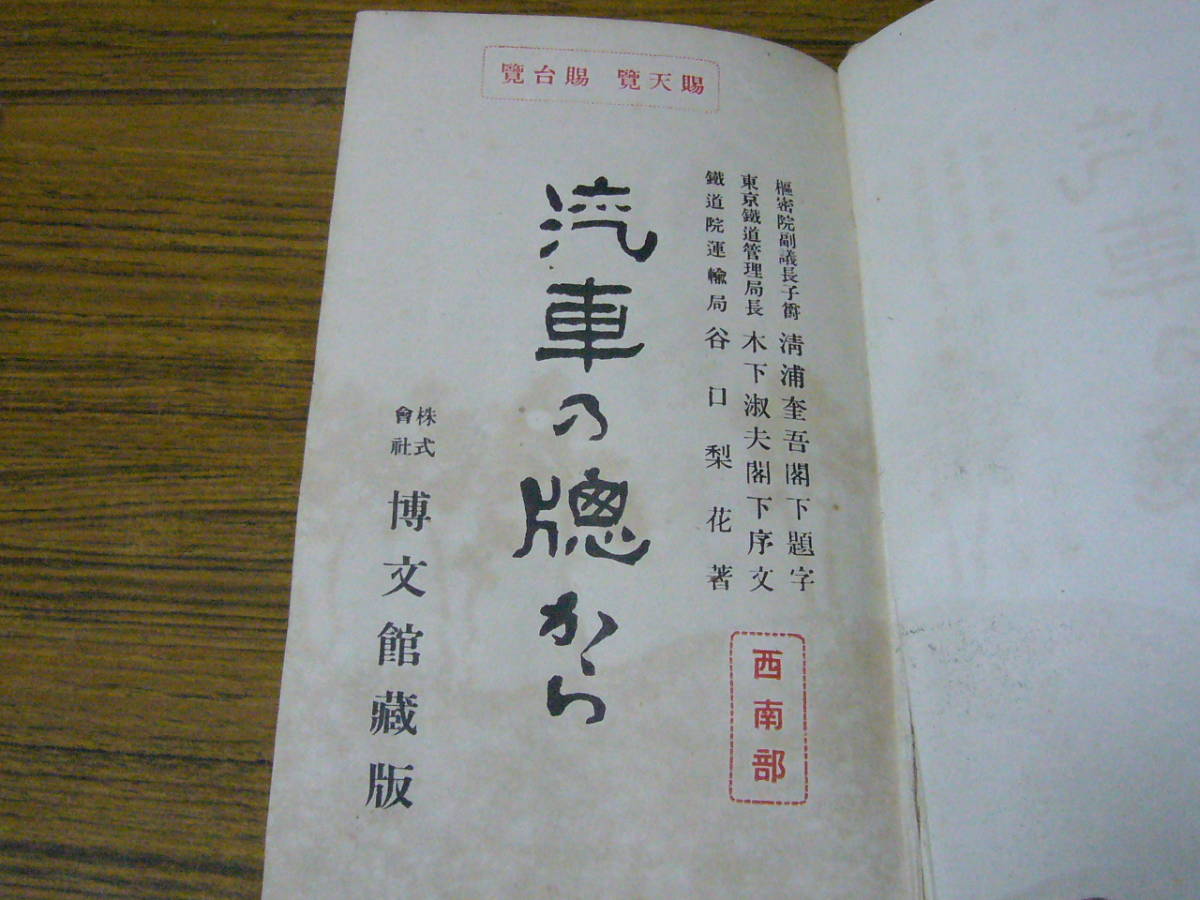 賜天覽 賜台覽
樞密院副議長子爵 淸浦奎吾閣下題字
東京鐵道管理局長 木下淑夫閣下序文
鐵道院運輸局 谷口梨花著
西南部
汽車の窻から
株式會社 博文館藏版